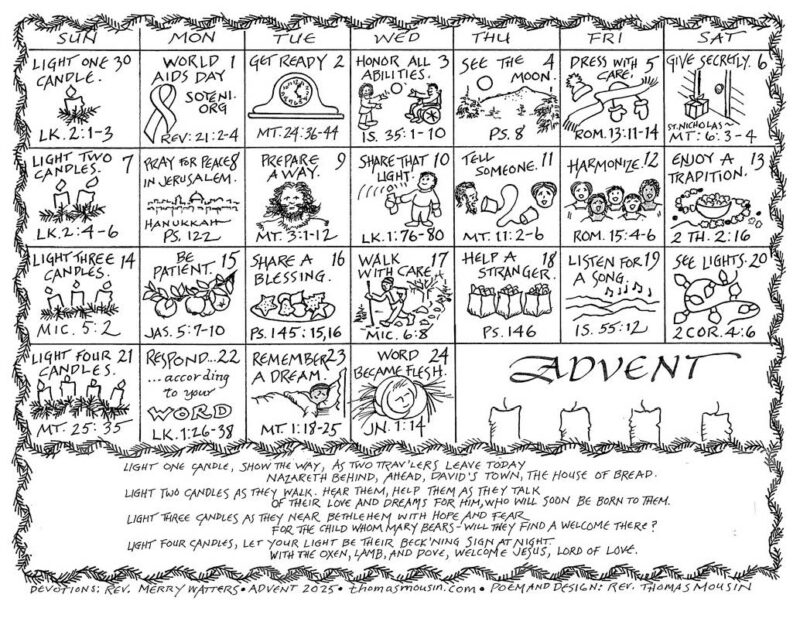 SUN MON TUE WED THU FRI SAT
LIGHT ONE 30
CANDLE.
LK. 2:1-3
WORLD 1
AIDS DAY
SOTENI.
ORG
REV: 21:2-4
GET READY 2
MT. 24:36-44
HONOR ALL 3
ABILITIES.
IS. 35:1-10
SEE THE 4
MOON.
PS. 8
DRESS WITH 5
CARE.
ROM. 13:11-14
GIVE SECRETLY. 6
ST. NICHOLAS~
MT: 6:3-4
LIGHT TWO 7
CANDLES.
LK. 2:4-6
PRAY FOR PEACE 8
IN JERUSALEM.
HANUKKAH
PS. 122
PREPARE 9
A WAY.
MT. 3:1-12
SHARE THAT 10
LIGHT.
LK. 1:76-80
TELL 11
SOMEONE.
MT. 11:2-6
HARMONIZE. 12
ROM. 15:4-6
ENJOY A 13
TRADITION.
2 TH. 2:16
LIGHT THREE 14
CANDLES.
MIC. 5:2
BE 15
PATIENT.
JAS. 5:7-10
SHARE A 16
BLESSING.
PS. 145:15,16
WALK 17
WITH CARE.
MIC. 6:8
HELP A 18
STRANGER.
PS. 146
LISTEN FOR 19
A SONG.
IS. 55:12
SEE LIGHTS. 20
2 COR. 4:6
LIGHT FOUR 21
CANDLES.
MT. 25:35
RESPOND... 22
...according
to your
WORD
LK. 1:26-38
REMEMBER 23
A DREAM.
MT. 1:18-25
WORD 24
BECAME FLESH.
JN. 1:14
ADVENT
LIGHT ONE CANDLE, SHOW THE WAY, AS TWO TRAV'LERS LEAVE TODAY
NAZARETH BEHIND, AHEAD, DAVID'S TOWN, THE HOUSE OF BREAD.
LIGHT TWO CANDLES AS THEY WALK. HEAR THEM, HELP THEM AS THEY TALK
OF THEIR LOVE AND DREAMS FOR HIM, WHO WILL SOON BE BORN TO THEM.
LIGHT THREE CANDLES AS THEY NEAR BETHLEHEM WITH HOPE AND FEAR
FOR THE CHILD WHOM MARY BEARS-WILL THEY FIND A WELCOME THERE?
LIGHT FOUR CANDLES, LET YOUR LIGHT BE THEIR BECK'NING SIGN AT NIGHT.
WITH THE OXEN, LAMB, AND DOVE, WELCOME JESUS, LORD OF LOVE.
DEVOTIONS: REV. MERRY WATTERS • ADVENT 2025 • thomasmousin.com • POEM AND DESIGN: REV. THOMAS MOUSIN